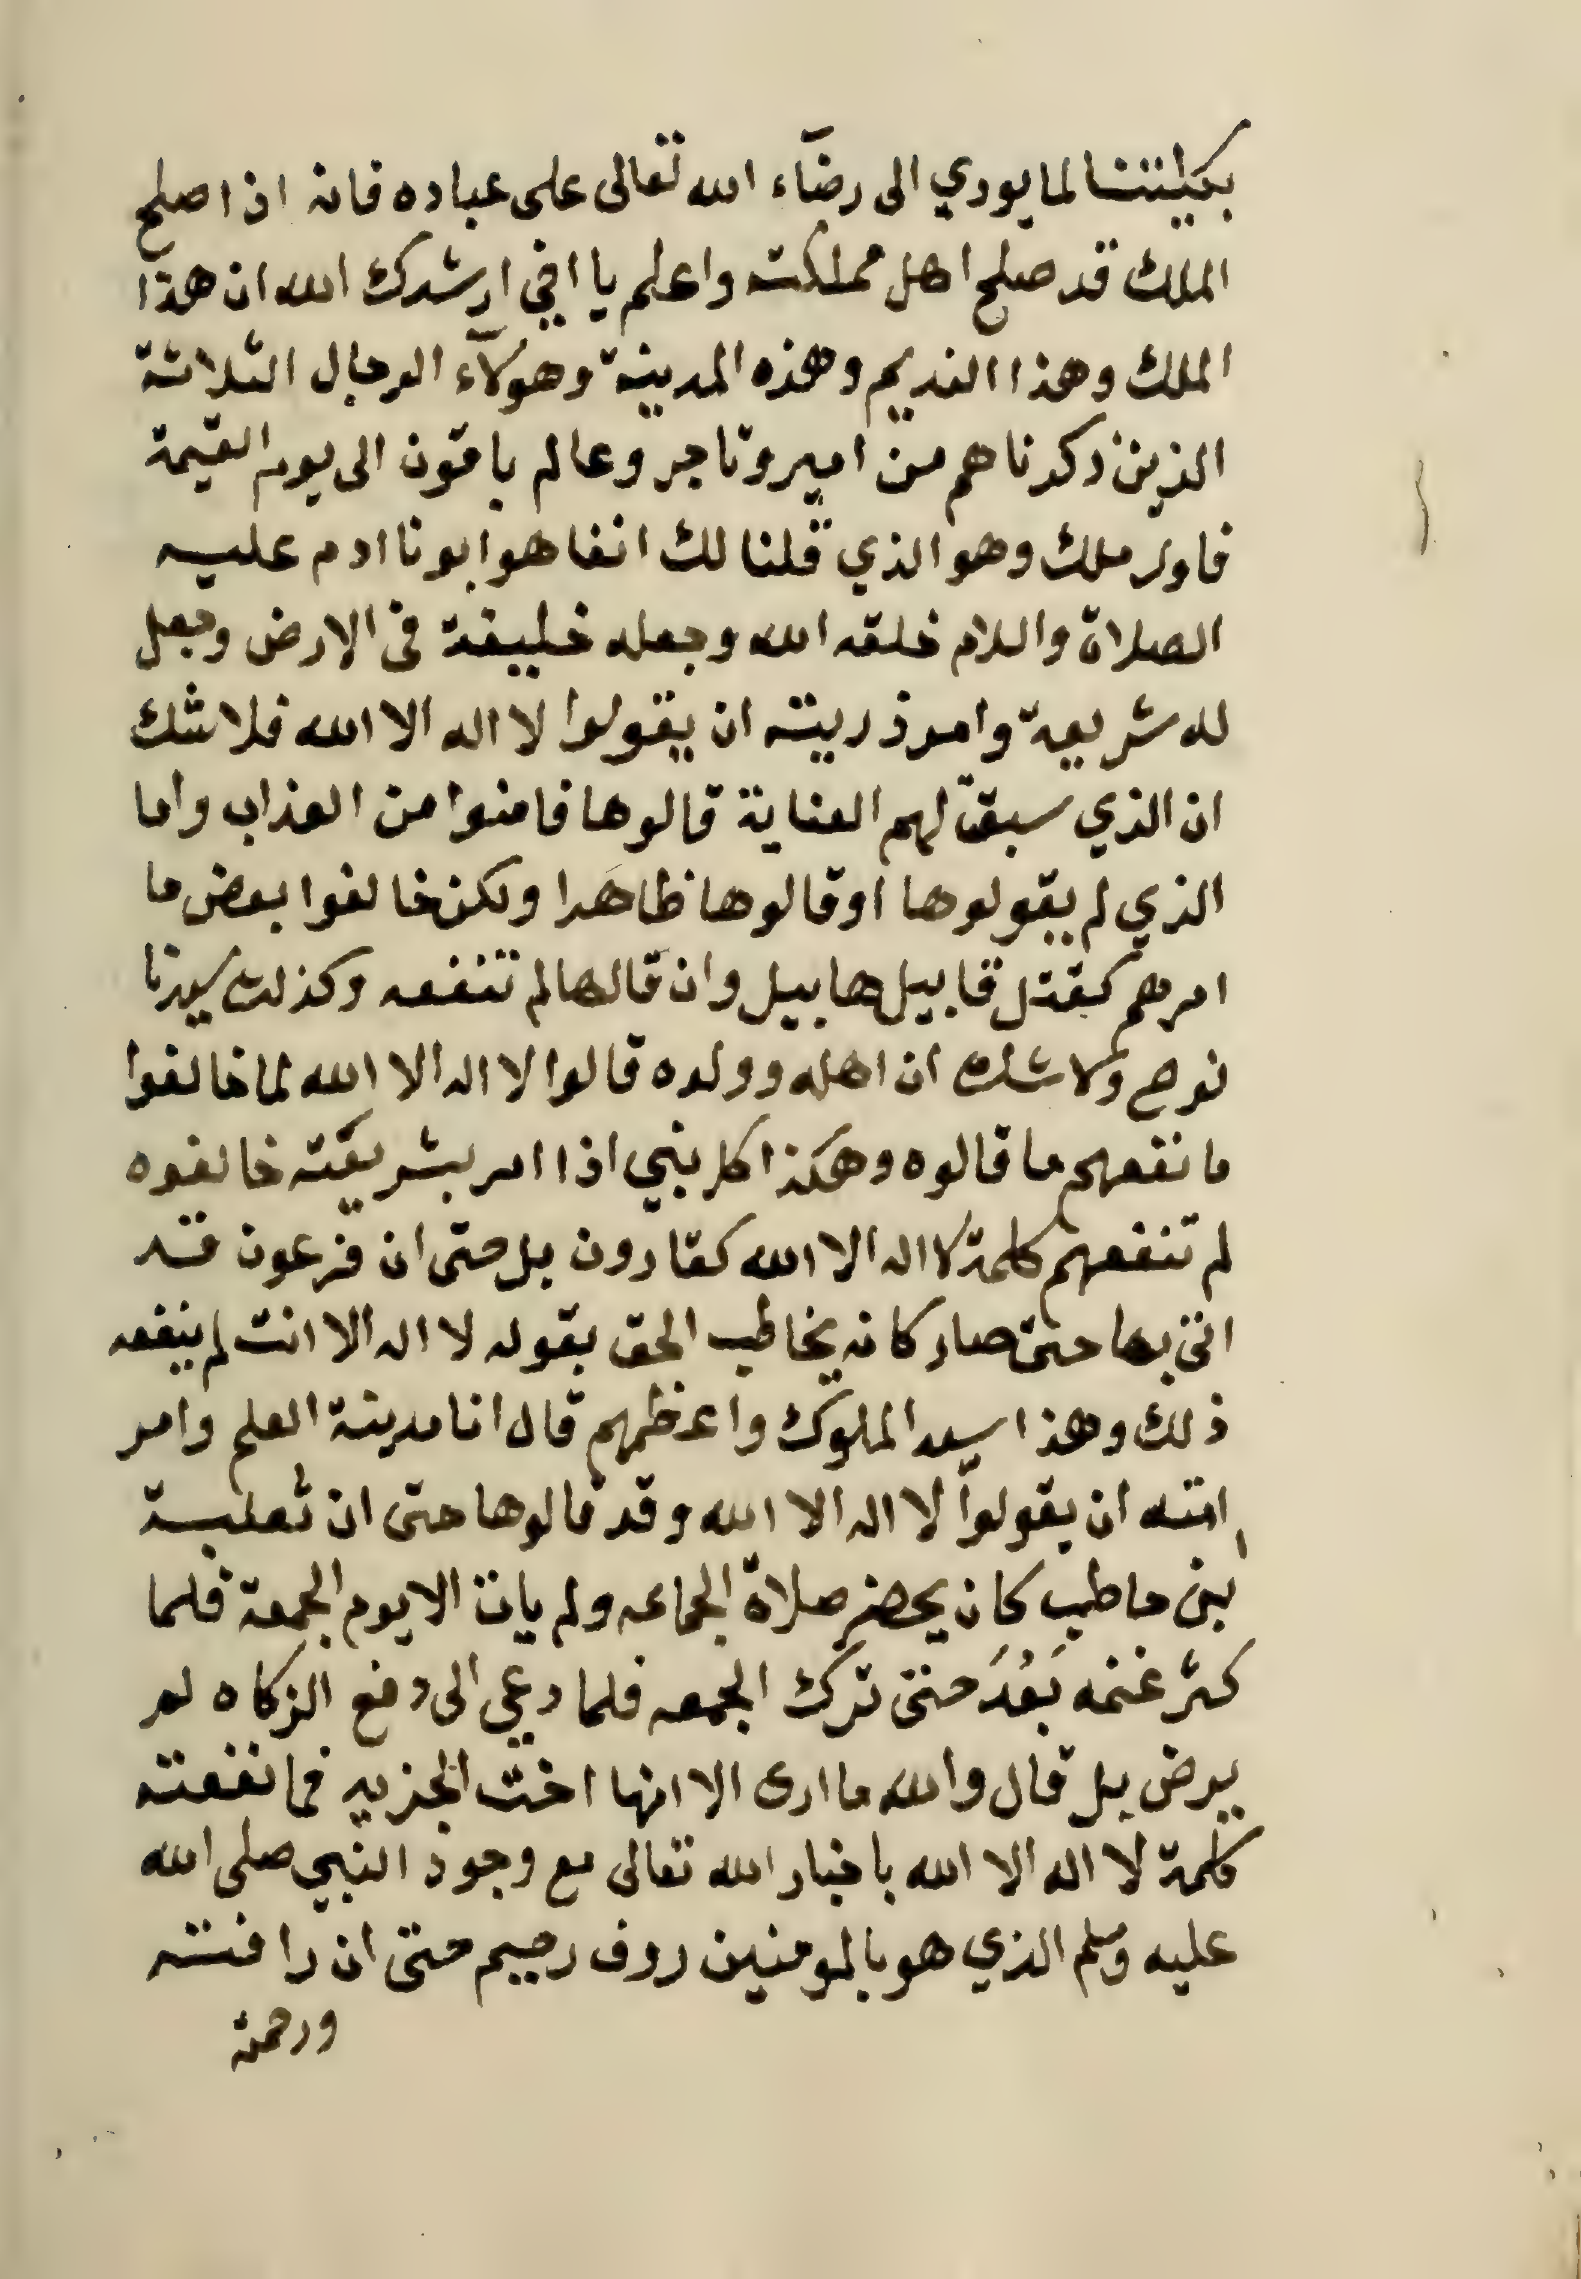 بكليتنا لما يودي الى رضآء الله تعالى على عباده فانه اذا صلح
الملك قد صلح اهل مملكته واعلم يا اخي ارشدك الله ان هذا
الملك وهذا النديم وهذه المدينة وهولآء الرجال الثلاثة
الذين ذكرناهم من امير وتاجر وعالم باقون الى يوم القيمة
فاول ملك وهو الذي قلنا لك انفا هو ابونا ادم عليه
الصلاة والسلام خلقه الله وجعله خليفة في الارض وجعل
له شريعة وامر ذريته ان يقولوا لا اله الا الله فلا شك
ان الذي سبقت لهم العناية قالوها فامنوا من العذاب واما
الذي لم يقولوها او قالوها ظاهرا ولكن خالفوا بعض ما
امرهم كقتل قابيل هابيل وان قالها لم تنفعه وكذلك سيدنا
نوح ولا شك ان اهله وولده قالوا لا اله الا الله لما خالفوا
ما نفعهم ما قالوه وهكذا كل نبي اذا امر بشريعته خالفوه
لم تنفعهم كلمة لا اله الا الله كقارون بل حتى ان فرعون قد
اتى بها حتى صار كانه يخاطب الحق بقوله لا اله الا انت لم ينفعه
ذلك وهذا سيد الملوك واعظمهم قال انا مدينة العلم وامر
امته ان يقولوا لا اله الا الله وقد قالوها حتى ان ثعلبة
ابن حاطب كان يحضر صلاة الجماعه ولم يات الا يوم الجمعة فلما
كثر غنمه بَعُدَ حتى ترك الجمعه فلما دعي الى دفع الزكاه لم
يرض بل قال والله ما ارى الا انها اخت الجزيه فما نفعته
كلمة لا اله الا الله باخبار الله تعالى مع وجود النبي صلى الله
عليه وسلم الذي هو بالمومنين روف رحيم حتى ان رافته
ورحمته